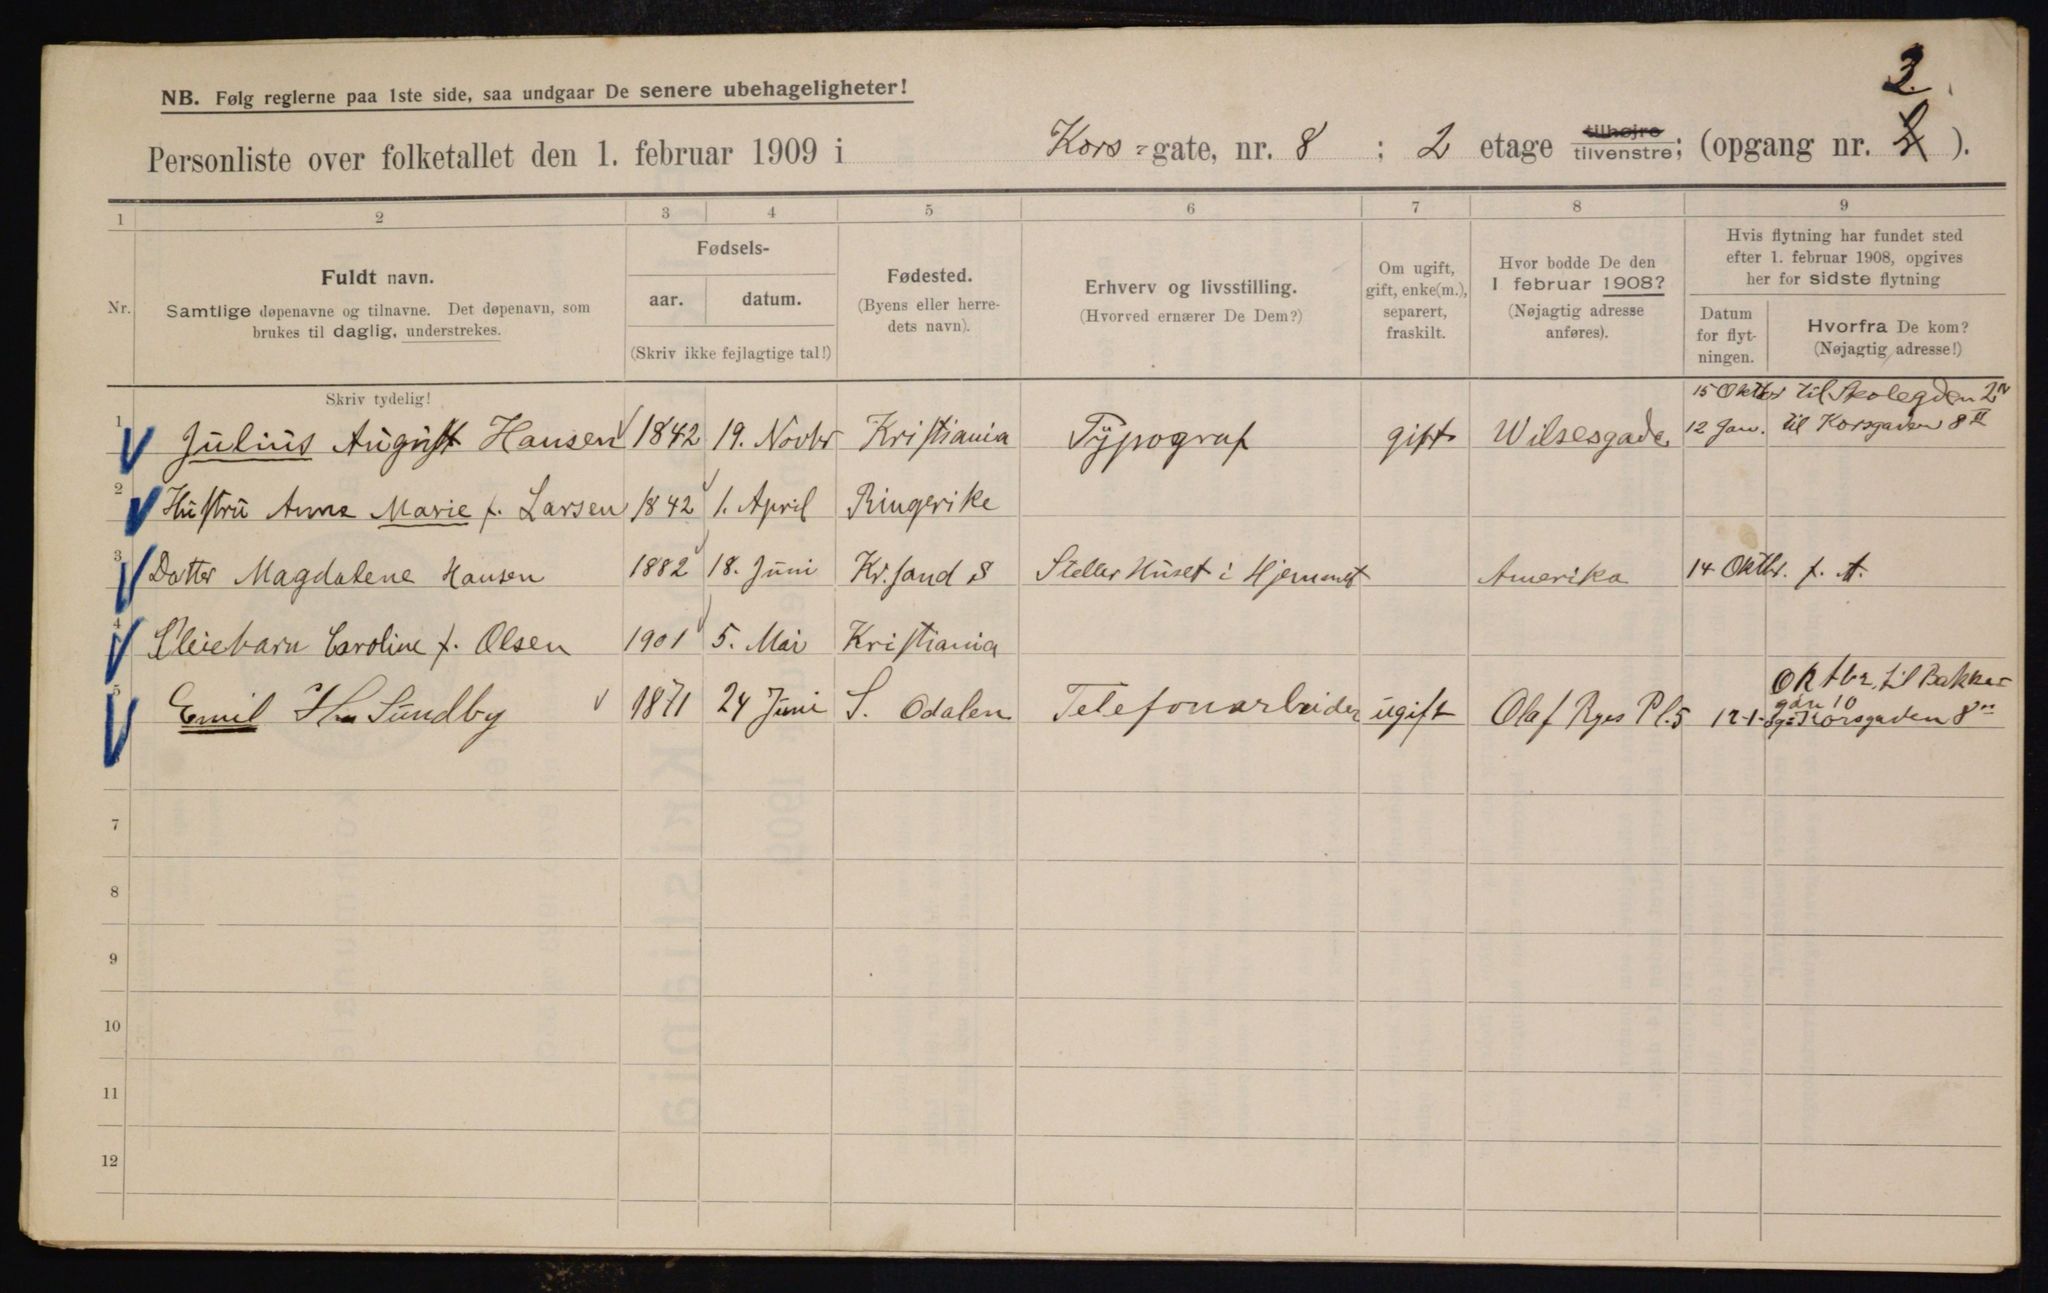 3.
NB. Følg reglerne paa 1ste side, saa undgaar De senere ubehageligheter!
Personliste over folketallet den 1. februar 1909 i Kors-gate, nr. 8 ; 2 etage tilhøjre tilvenstre; (opgang nr. 2 ).
1 2 3 4 5 6 7 8 9
Nr.
Fuldt navn.
Samtlige døpenavne og tilnavne. Det døpenavn, som
brukes til daglig, understrekes.
Fødsels-
aar. datum.
(Skriv ikke fejlagtige tal!)
Fødested.
(Byens eller herre-
dets navn).
Erhverv og livsstilling.
(Hvorved ernærer De Dem?)
Om ugift,
gift, enke(m.),
separert,
fraskilt.
Hvor bodde De den
1 februar 1908?
(Nøjagtig adresse
anføres).
Hvis flytning har fundet sted
efter 1. februar 1908, opgives
her for sidste flytning
Datum
for flyt-
ningen.
Hvorfra De kom?
(Nøjagtig adresse!)
Skriv tydelig!
15 Oktbr til Skolegden 2
1 Julius August Hansen 1842 19. Novbr Kristiania Typograf gift Wilsesgade 12 Jan. til Korsgaden 8 II
2 Hustru Anne Marie f. Larsen 1842 1. April Ringerike
3 Datter Magdalene Hansen 1882 18. Juni Kr.sand S Steller Huset i Hjemmet Amerika 14 Oktbr. f. A.
4 Pleiebarn Caroline f. Olsen 1901 5. Mai Kristiania
Oktbr. til Bakke-
gdn 10
5 Emil Sundby 1871 24 Juni S. Odalen Telefonarbeider ugift Olaf Ryes Pl. 5 12-1- Korsgaden 8
7
8
9
10
11
12